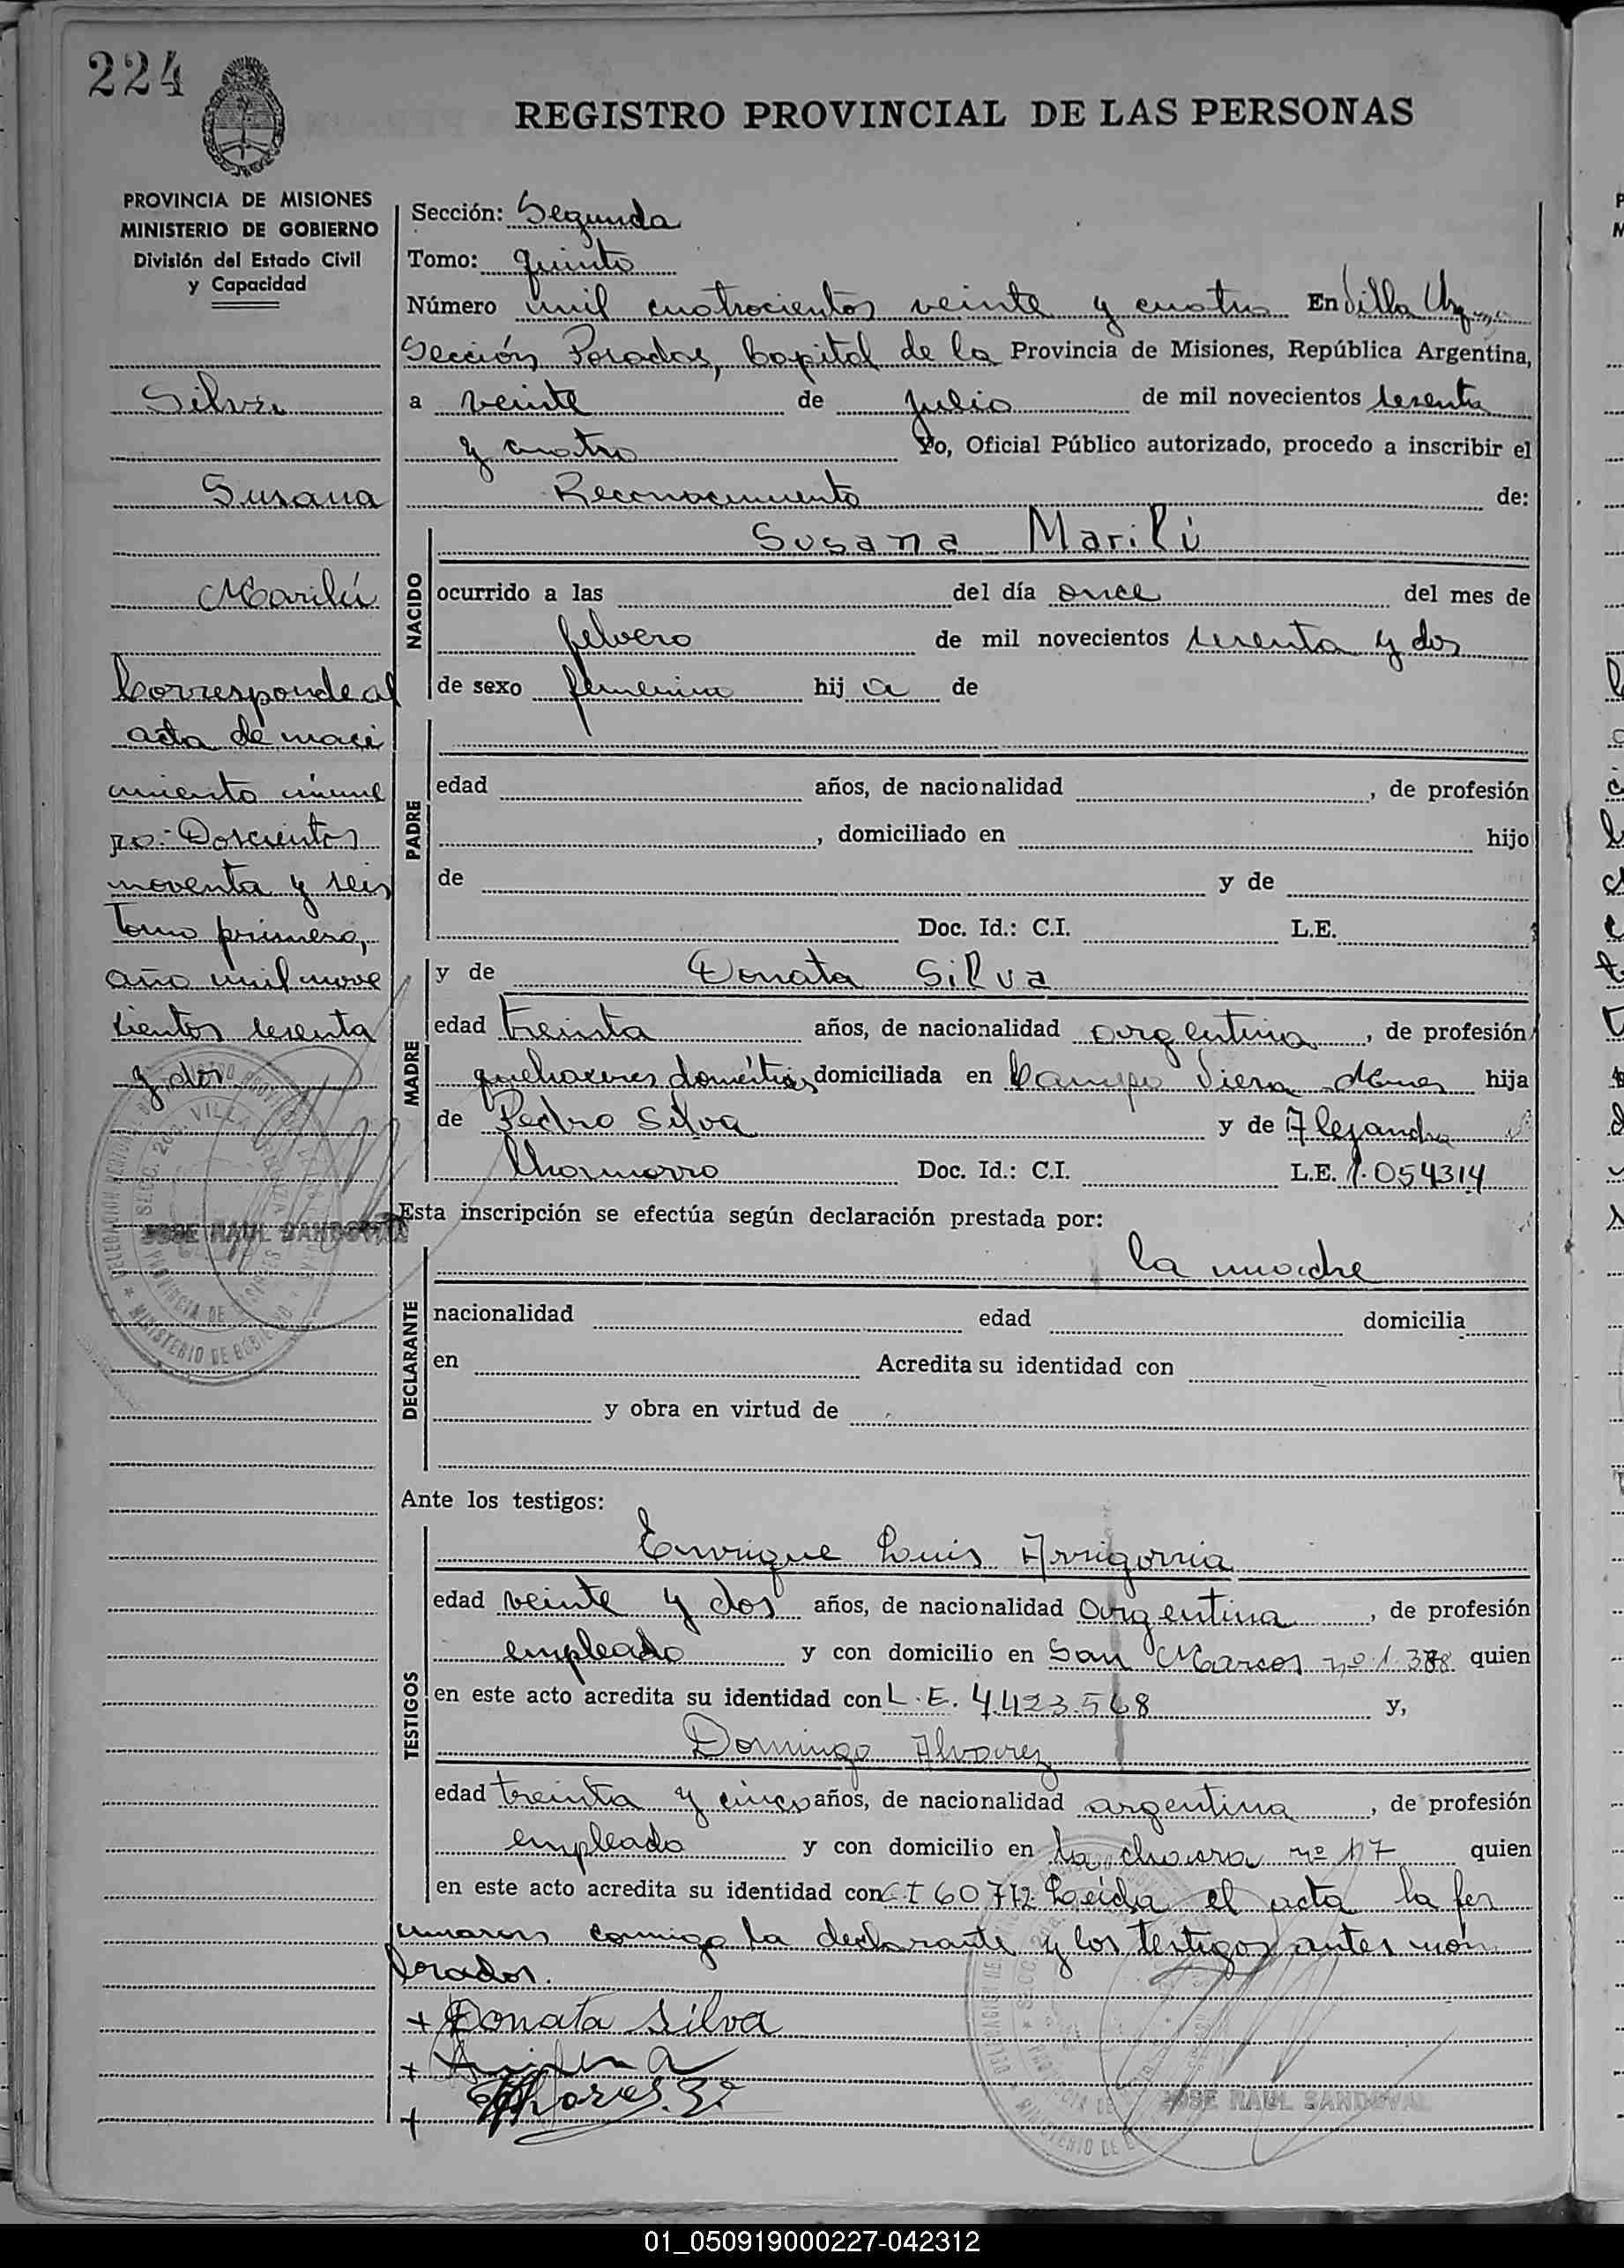 224
REGISTRO PROVINCIAL DE LAS PERSONAS
PROVINCIA DE MISIONES
MINISTERIO DE GOBIERNO
División del Estado Civil
y Capacidad
Silva
Susana
Marilú
Corresponde al
acta de naci
miento núme
ro: Doscientos
noventa y seis
Tomo primero,
año mil nove
cientos sesenta
y dos
JOSE RAUL SANDOVAL
Sección: Segunda
Tomo: quinto
Número mil cuatrocientos veinte y cuatro En Villa
Sección, Posadas, Capital de la Provincia de Misiones, República Argentina,
a veinte de julio de mil novecientos sesenta
y cuatro Yo, Oficial Público autorizado, procedo a inscribir el
Reconocimiento de:
NACIDO
Susana Marilú
ocurrido a las del día once del mes de
febrero de mil novecientos sesenta y dos
de sexo femenino hij a de
PADRE
edad años, de nacionalidad , de profesión
, domiciliado en hijo
de y de
Doc. Id.: C.I. L.E.
MADRE
y de Donata Silva
edad treinta años, de nacionalidad argentina, de profesión
quehaceres domésticos domiciliada en Campo Viera hija
de Pedro Silva y de Alejandra
Chamorro Doc. Id.: C.I. L.E. 1.054314
Esta inscripción se efectúa según declaración prestada por:
DECLARANTE
la madre
nacionalidad edad domicilia
en Acredita su identidad con
y obra en virtud de
Ante los testigos:
TESTIGOS
Enrique Luis Arrigorria
edad veinte y dos años, de nacionalidad argentina, de profesión
empleado y con domicilio en San Marcos nº 1.388 quien
en este acto acredita su identidad con L.E. 4.423.568 y,
Domingo Alvarez
edad treinta y cinco años, de nacionalidad argentina, de profesión
empleado y con domicilio en La chacra nº 117 quien
en este acto acredita su identidad con C I 60712 Leida el acta la fir
maron conmigo la declarante y los testigos antes nom
brados.
+ Donata Silva
+
+
JOSE RAUL SANDOVAL
01_050919000227-042312